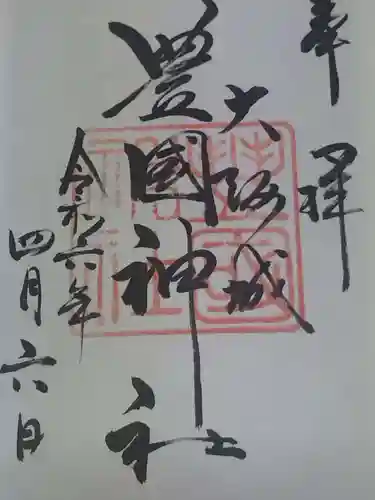 奉拝
大阪城
豊國神社
令和六年
四月六日